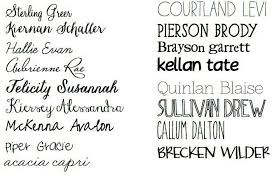 Sterling Greer
Kiernan Schaller
Hallie Evan
Aubrienne Rae
Felicity Susannah
Kiersey Alessandra
McKenna Avalon
Piper Gracie
acacia capri
COURTLAND LEVI
PIERSON BRODY
Brayson garrett
kellan tate
Quinlan Blaise
SULLIVAN DREW
CALLUM DALTON
BRECKEN WILDER